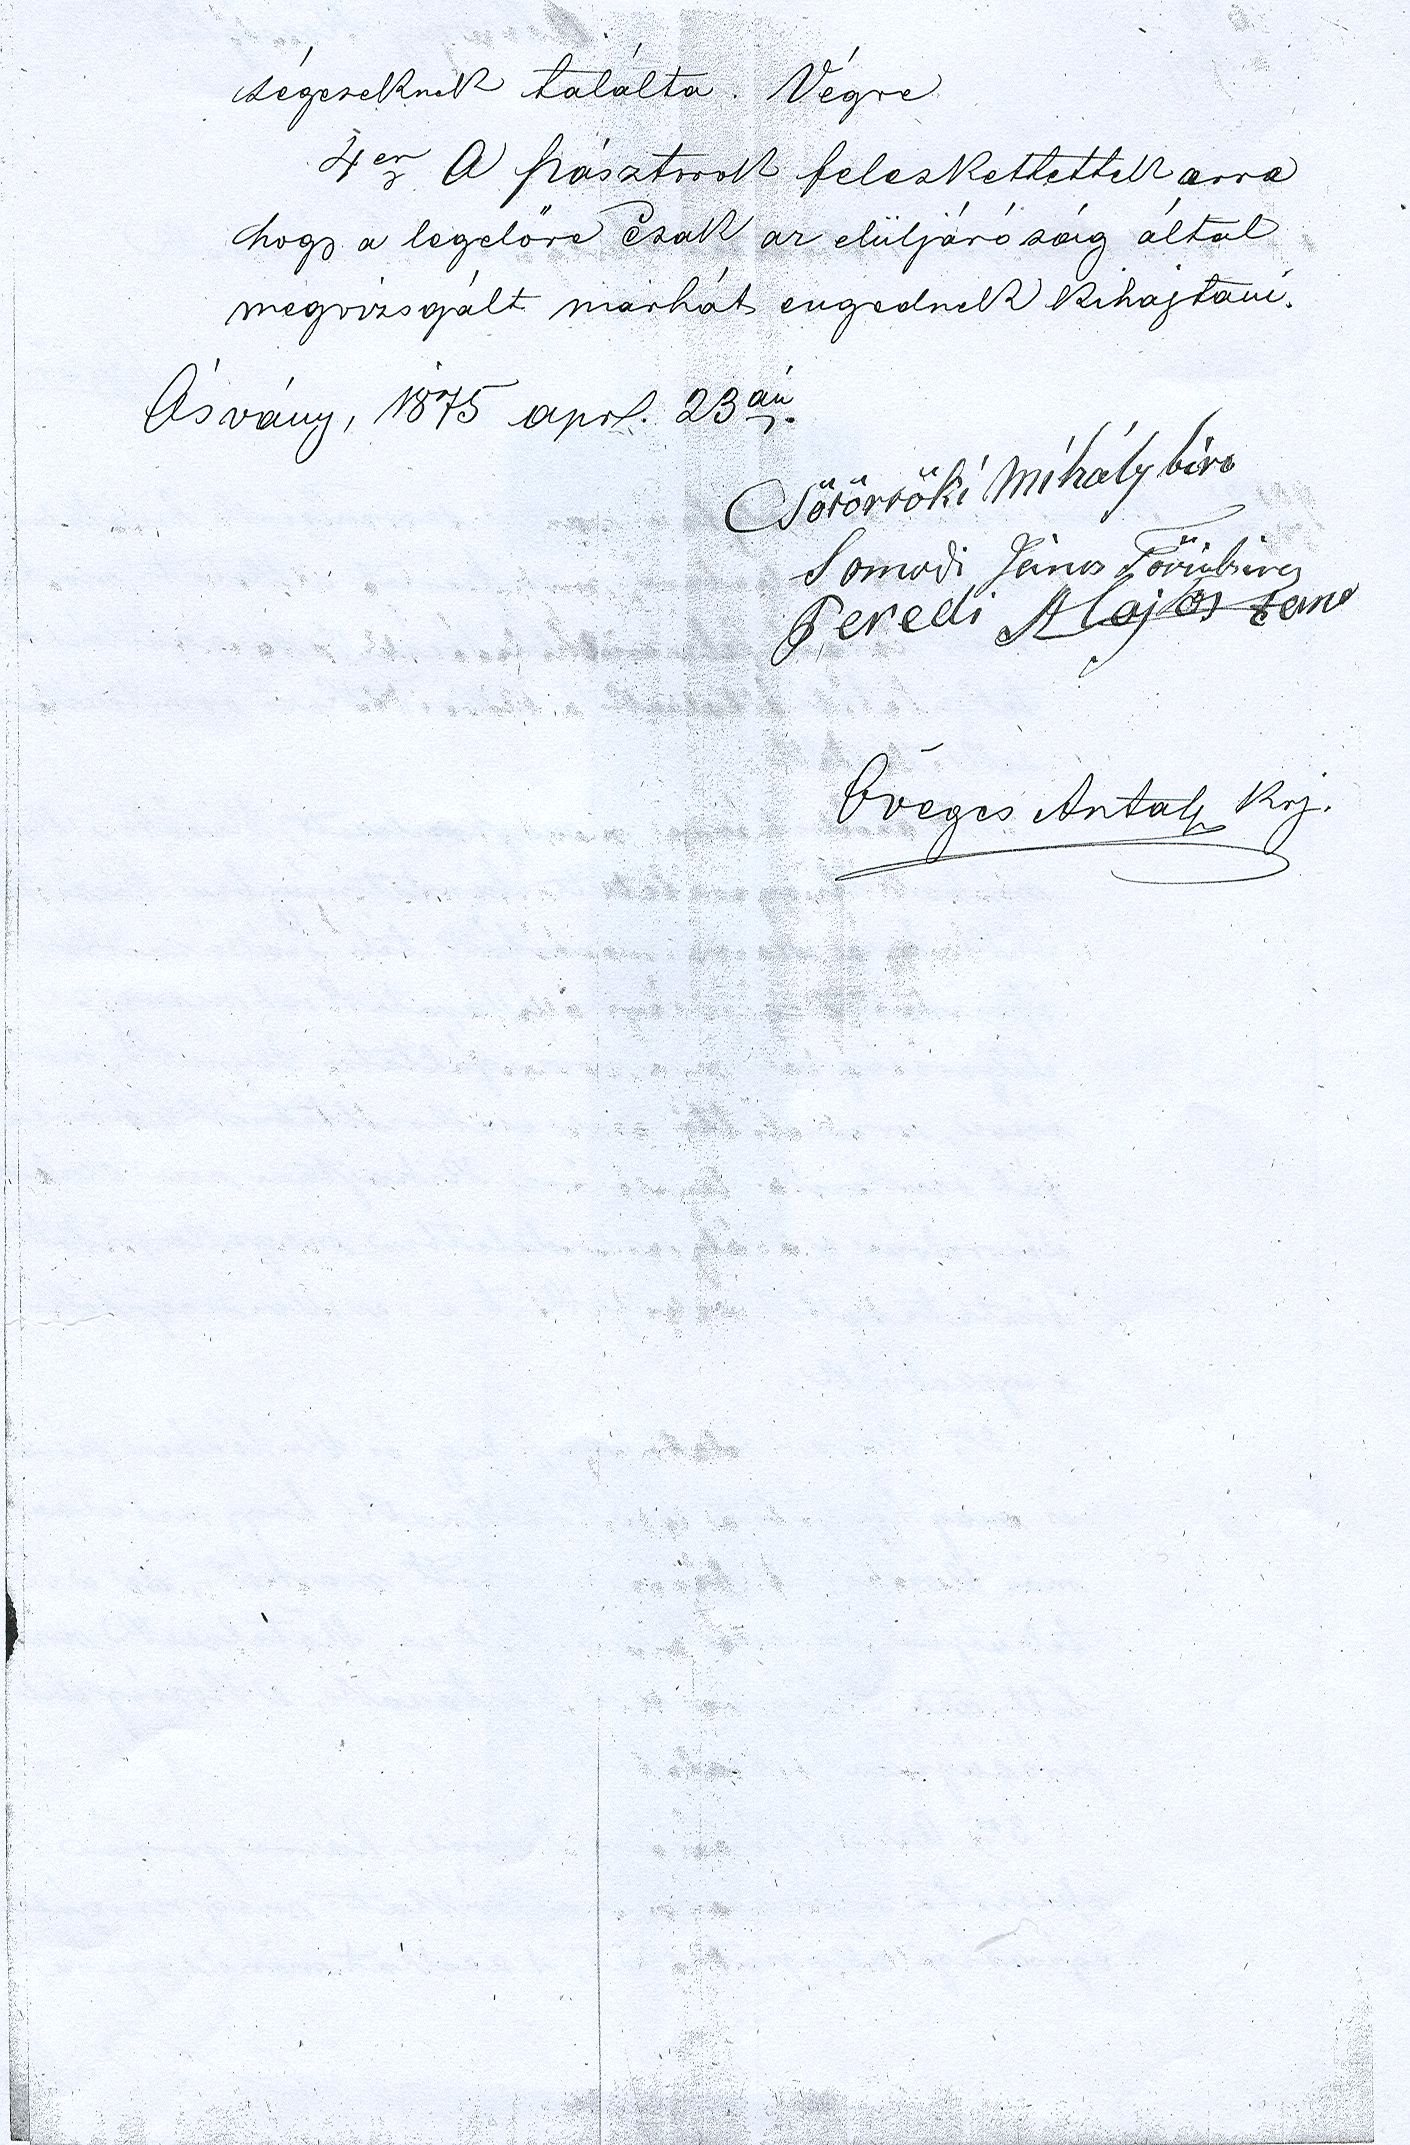 ségeseknek találta. Végre
4er A pásztorok feleskettettek arra
hogy a legelőre csak az elüljáróság által
megvizsgált marhát engednek kihajtani.
Ásvány, 1875 aprl. 23án.
Csötörtöki Mihály biro
Somodi János Törvbiro
Peredi Alajos
Öveges Antal krj.